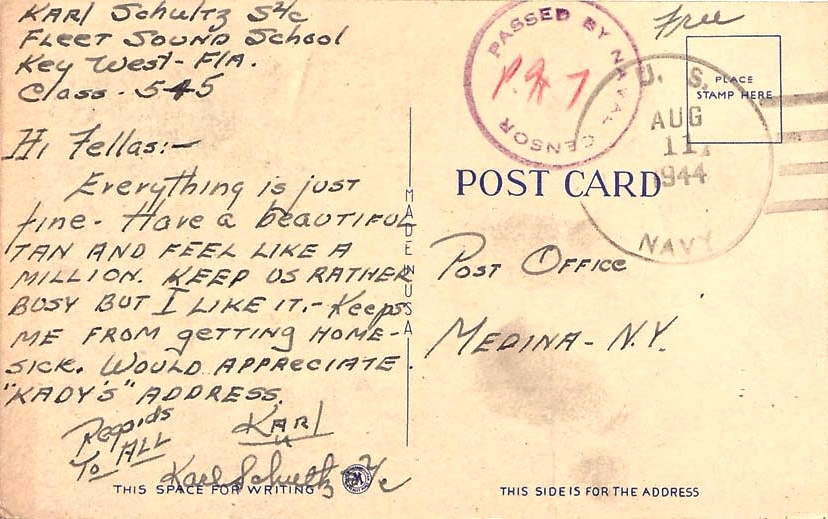 Karl Schultz S2/c
Fleet Sound School
Key West - Fla.
Class - 545
Hi Fellas:-
Everything is just
fine - Have a beautiful
TAN AND FEEL LIKE A
MILLION. KEEP US RATHER
BUSY BUT I LIKE IT. - Keeps
ME FROM getting HOME-
SICK. WOULD APPRECIATE
"KADY'S" ADDRESS.
Regards
To ALL
Karl
Karl Schultz S2/c
THIS SPACE FOR WRITING
MADE IN USA
PASSED BY NAVAL CENSOR
Free
PLACE
STAMP HERE
U. S.
AUG
11
1944
NAVY
POST CARD
Post Office
MEDINA - N.Y.
THIS SIDE IS FOR THE ADDRESS